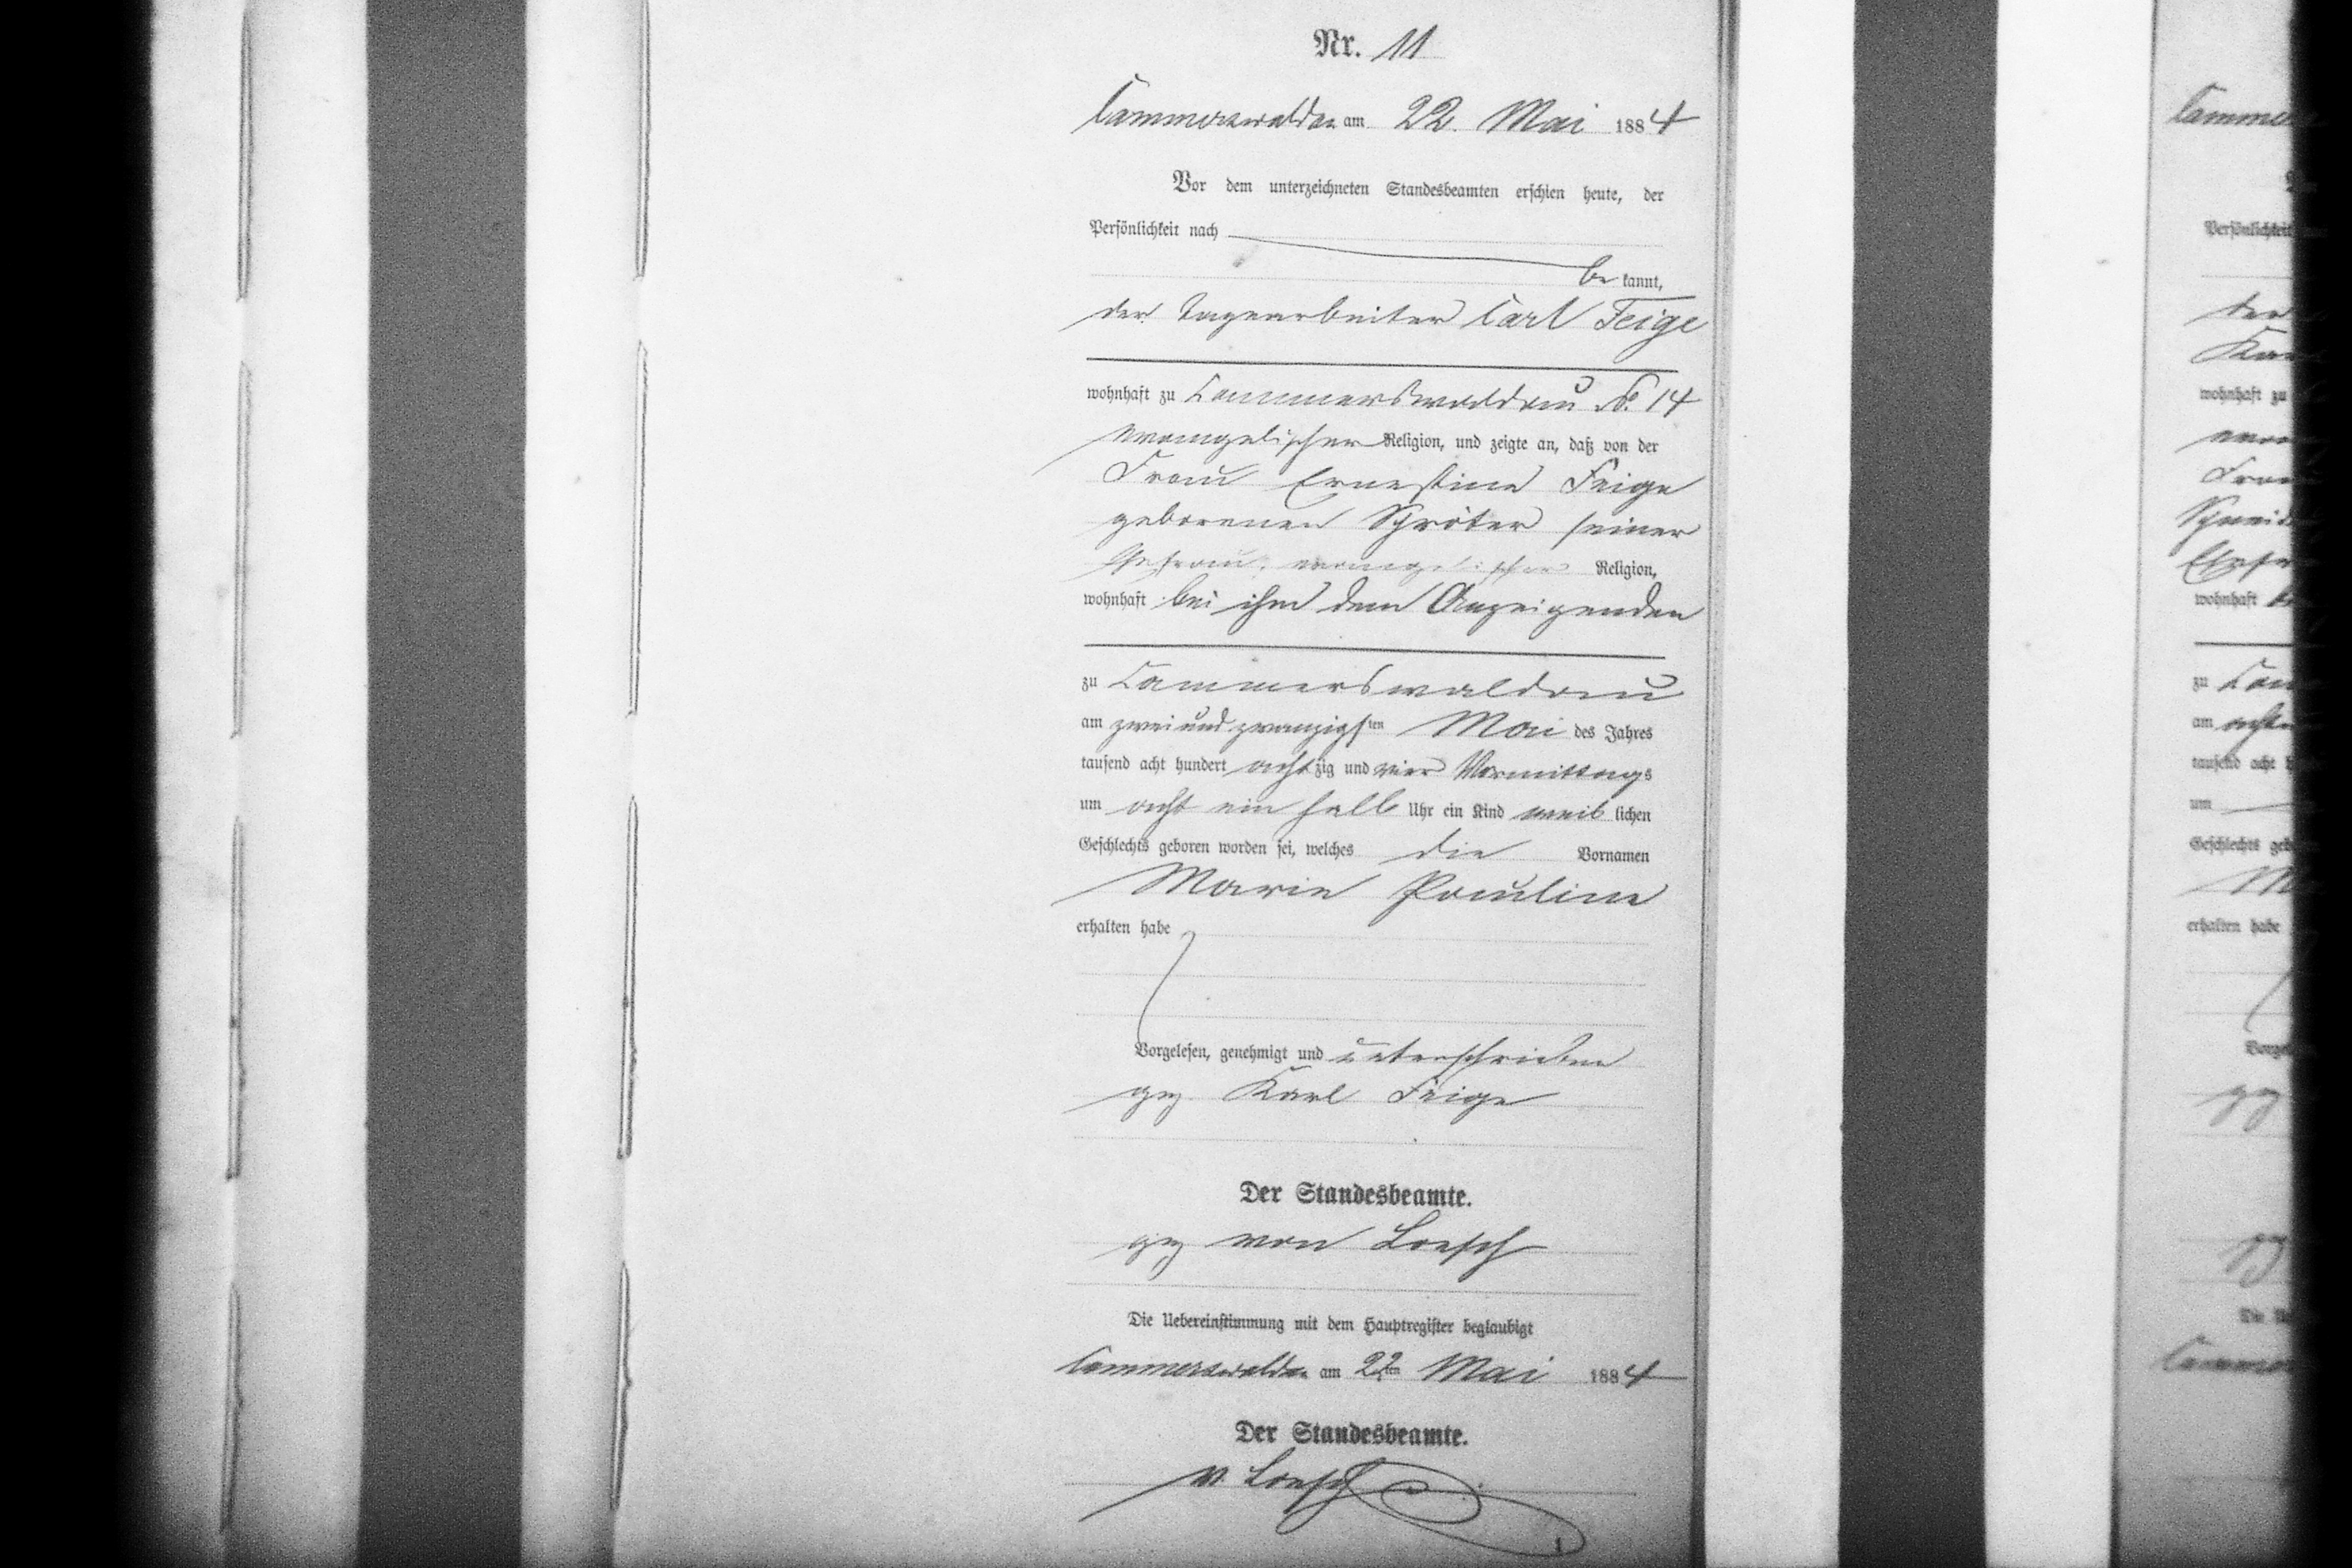 Nr. 11
Cammerswaldau am 22. Mai 1884
Vor dem unterzeichneten Standesbeamten erschien heute, der
Persönlichkeit nach
be kannt,
der Tagearbeiter Carl Feige
wohnhaft zu Cammerswaldau No. 14
evangelischer Religion, und zeigte an, daß von der
Frau Ernestine Feige
geborenen Schröter seiner
Ehefrau, evangelischer Religion,
wohnhaft bei ihm dem Anzeigenden
zu Cammerswaldau
am zwei und zwanzigsten Mai des Jahres
tausend acht hundert achtzig und vier Vormittags
um acht ein halb Uhr ein Kind weib lichen
Geschlechts geboren worden sei, welches die Vornamen
Marie Pauline
erhalten habe
Vorgelesen, genehmigt und unterschrieben
gez Karl Feige
Der Standesbeamte.
gez von Loesch
Die Uebereinstimmung mit dem Hauptregister beglaubigt
Cammerswaldau am 22ten Mai 1884
Der Standesbeamte.
v. Loesch
Persönlichkeit
wohnhaft zu
wohnhaft
zu
am
tausend acht
um
Geschlechts
erhalten habe